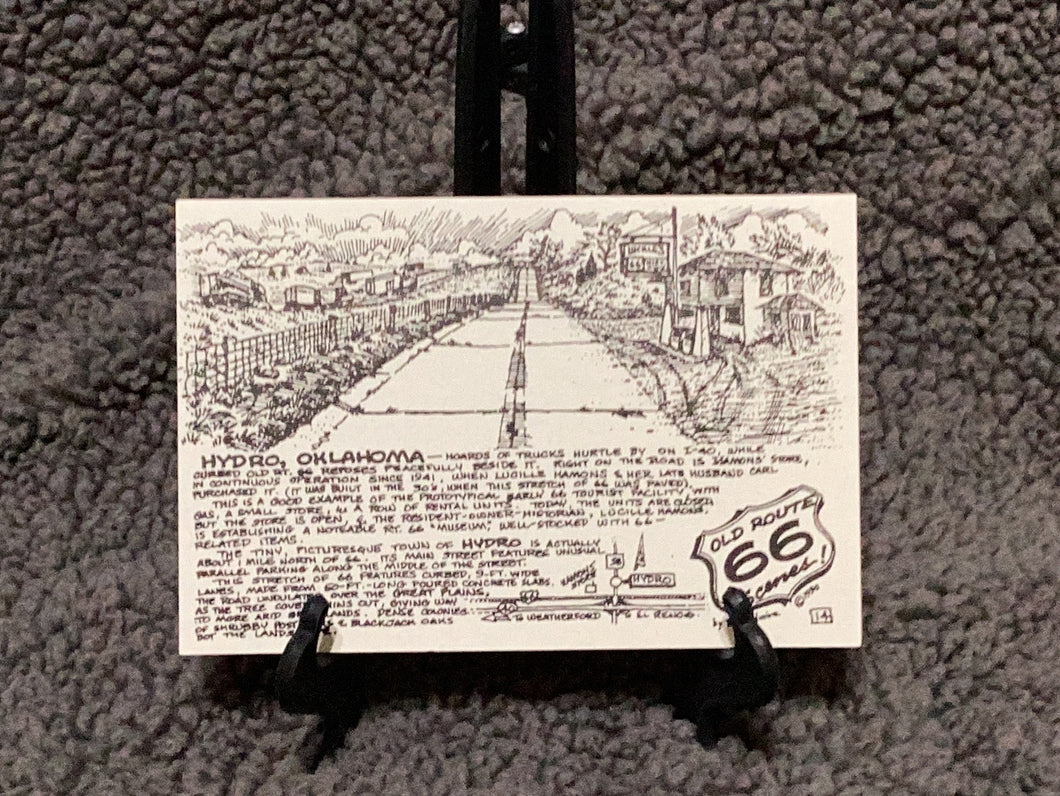 LUCILLE'S
66
HYDRO, OKLAHOMA — HOARDS OF TRUCKS HURTLE BY ON I-40, WHILE
CURBED OLD RT. 66 REPOSES PEACEFULLY BESIDE IT. RIGHT ON THE ROAD IS HAMONS' STORE,
IN CONTINUOUS OPERATION SINCE 1941, WHEN LUCILLE HAMONS & HER LATE HUSBAND CARL
PURCHASED IT. (IT WAS BUILT IN THE 30'S, WHEN THIS STRETCH OF 66 WAS PAVED).
THIS IS A GOOD EXAMPLE OF THE PROTOTYPICAL EARLY 66 TOURIST FACILITY, WITH
GAS, A SMALL STORE, & A ROW OF RENTAL UNITS. TODAY, THE UNITS ARE CLOSED
BUT THE STORE IS OPEN, & THE RESIDENT-OWNER-HISTORIAN, LUCILLE HAMONS,
IS ESTABLISHING A NOTEABLE RT. 66 "MUSEUM," WELL-STOCKED WITH 66-
RELATED ITEMS.
THE TINY, PICTURESQUE TOWN OF HYDRO IS ACTUALLY
ABOUT 1 MILE NORTH OF 66. ITS MAIN STREET FEATURES UNUSUAL
PARALLEL PARKING ALONG THE MIDDLE OF THE STREET.
THIS STRETCH OF 66 FEATURES CURBED, 9-FT. WIDE
LANES, MADE FROM 60-FT.-LONG POURED CONCRETE SLABS.
THE ROAD UNDULATES OVER THE GREAT PLAINS,
AS THE TREE COVER THINS OUT, GIVING WAY
TO MORE ARID LANDS. DENSE COLONIES
OF SHRUBBY POST & BLACKJACK OAKS
DOT THE LANDS
58
HYDRO
HAMON'S
STORE
40
TO WEATHERFORD
TO EL RENO
OLD ROUTE
66
Scenes!
©1990
by
14